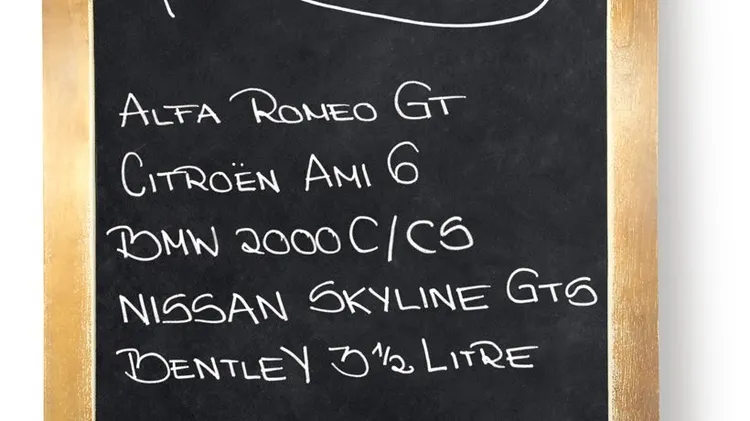 ALFA ROMEO GT
CITROËN AMI 6
BMW 2000 C/CS
NISSAN SKYLINE GTS
BENTLEY 3 1/2 LITRE